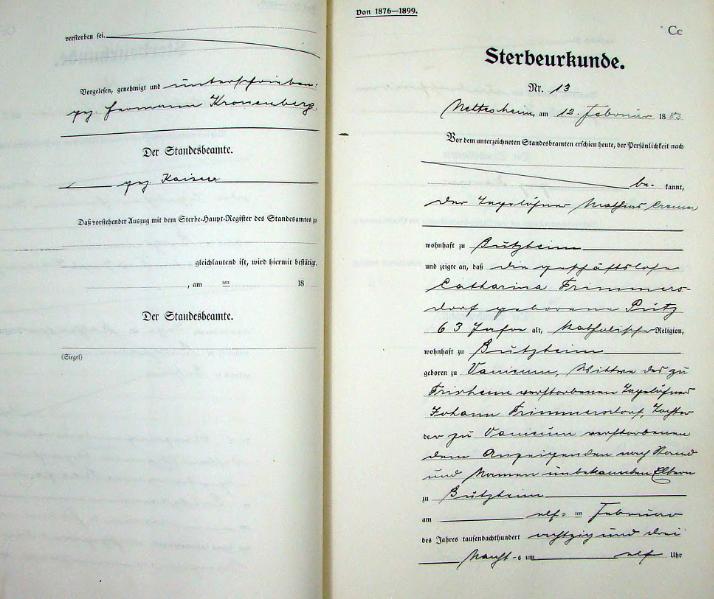 verstorben sei.
Vorgelesen, genehmigt und unterschrieben:
gz Hermann Kronenberg.
Der Standesbeamte.
gz Kaiser
Daß vorstehender Auszug mit dem Sterbe-Haupt-Register des Standesamtes zu
gleichlautend ist, wird hiermit bestätigt.
, am ten 18
Der Standesbeamte.
(Siegel)
Von 1876—1899.
Cc
Sterbeurkunde.
Nr. 13
Nettesheim, am 12. Februar 1883.
Vor dem unterzeichneten Standesbeamten erschien heute, der Persönlichkeit nach
be- kannt,
der Tagelöhner Mathias
wohnhaft zu Butzheim
und zeigte an, daß die geschäftslose
Catharina Frimmers-
dorf geborene Pütz
63 Jahre alt, katholischer Religion,
wohnhaft zu Butzheim
geboren zu Vanikum, Wittwe des zu
Frixheim verstorbenen Tagelöhners
Johann Frimmersdorf, Tochter
der zu Vanikum verstorbenen
dem Anzeigenden nach Stand
und Namen unbekannten Eltern
zu Butzheim
am elf- ten Februar
des Jahres tausendachthundert achtzig und drei
Nachts um elf Uhr